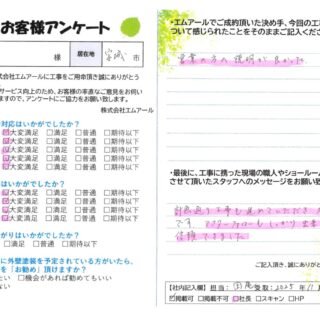 お客様アンケート
様 居住地 市
株式会社エムアールに工事をご用命頂き誠にありがとう
サービス向上のため、お客様の率直な意見をお伺い
ますので、アンケートにご協力をお願い致します。
株式会社エムアール
対応はいかがでしたか？
大変満足 □満足 □普通 □期待以下
大変満足 □満足 □普通 □期待以下
大変満足 □満足 □普通 □期待以下
大変満足 □満足 □普通 □期待以下
はいかがでしたか？
大変満足 □満足 □普通 □期待以下
大変満足 □満足 □普通 □期待以下
大変満足 □満足 □普通 □期待以下
大変満足 □満足 □普通 □期待以下
がりはいかがでしたか？
大変満足 □満足 □普通 □期待以下
に外壁塗装を予定されている方がいたら、
を「お勧め」頂けますか？
たい □機会があれば勧めてもいい
ない
・エムアールでご成約頂いた決め手、今回の工
ついて感じられたことをそのままご記入くださ
営業の方の説明が良かった。
・最後に、工事に携った現場の職人やショールー
させて頂いたスタッフへのメッセージをお願い致
ご記入頂き、誠にありがと
【社内記入欄】担当： 受取：2025年11月
掲載可 □掲載不可 社長 □スキャン □HP